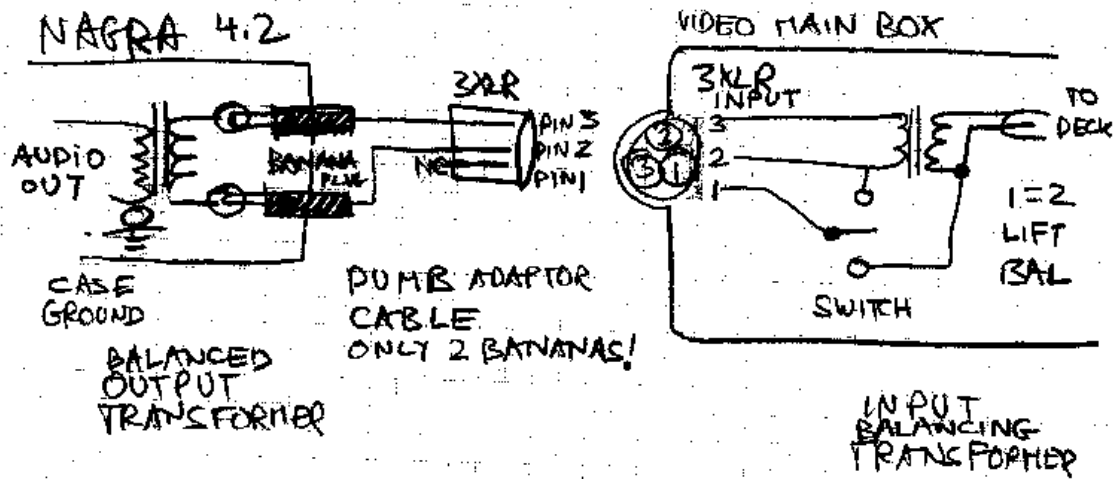 NAGRA 4.2
AUDIO
OUT
CASE
GROUND
BALANCED
OUTPUT
TRANSFORMER
BANANA
PLUG
3XLR
PIN 3
PIN 2
NC
PIN 1
DUMB ADAPTOR
CABLE
ONLY 2 BANANAS!
VIDEO MAIN BOX
3XLR
INPUT
3
2
1
2
3
1
TO
DECK
1=2
LIFT
BAL
SWITCH
INPUT
BALANCING
TRANSFORMER